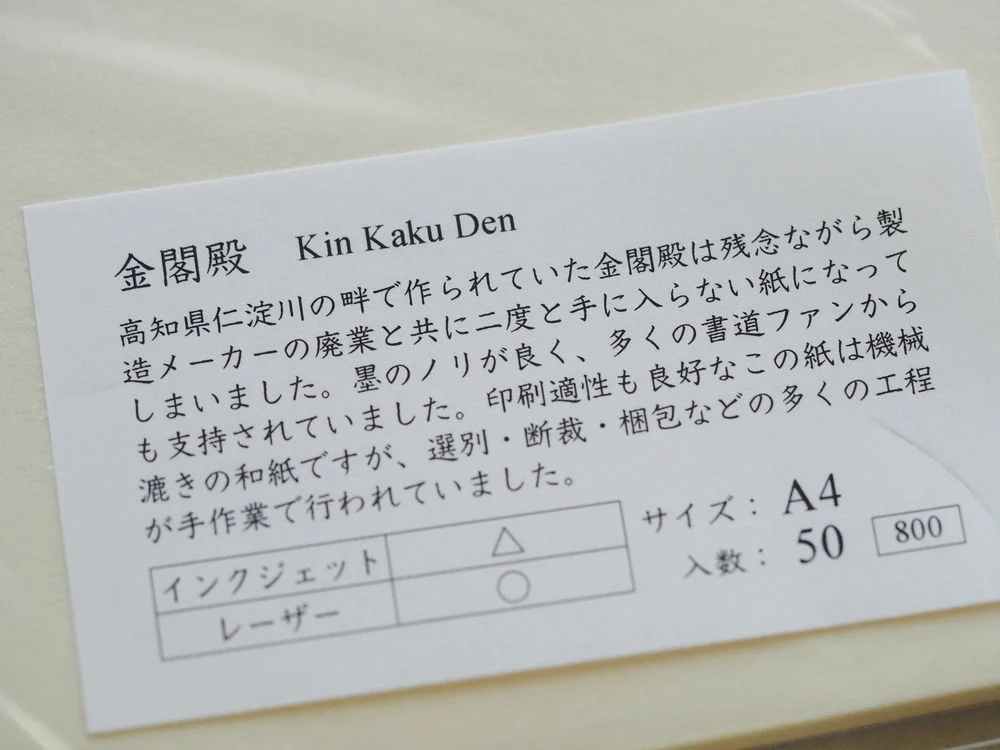 金閣殿 Kin Kaku Den
高知県仁淀川の畔で作られていた金閣殿は残念ながら製
造メーカーの廃業と共に二度と手に入らない紙になって
しまいました。墨のノリが良く、多くの書道ファンから
も支持されていました。印刷適性も良好なこの紙は機械
漉きの和紙ですが、選別・断裁・梱包などの多くの工程
が手作業で行われていました。
インクジェット △
レーザー ○
サイズ： A4
入数： 50 800